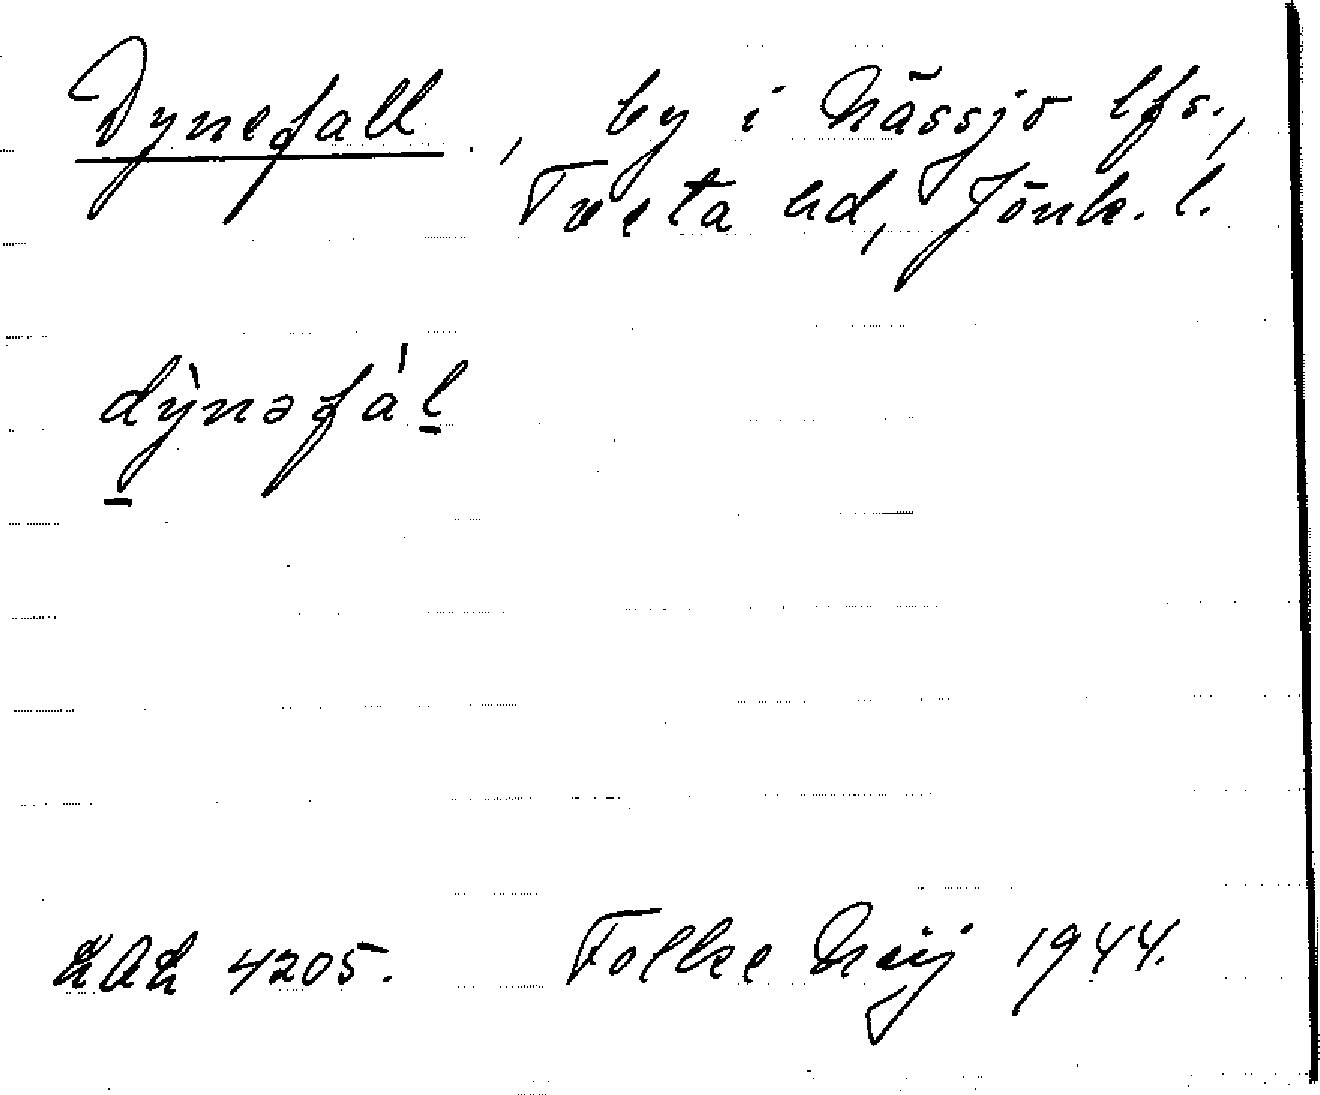 Dynefall, by i Nässjö lfs.,
Tveta hd, Jönk. l.
dỳnəfá'l
LAL 4205. Folke Neij 1944.